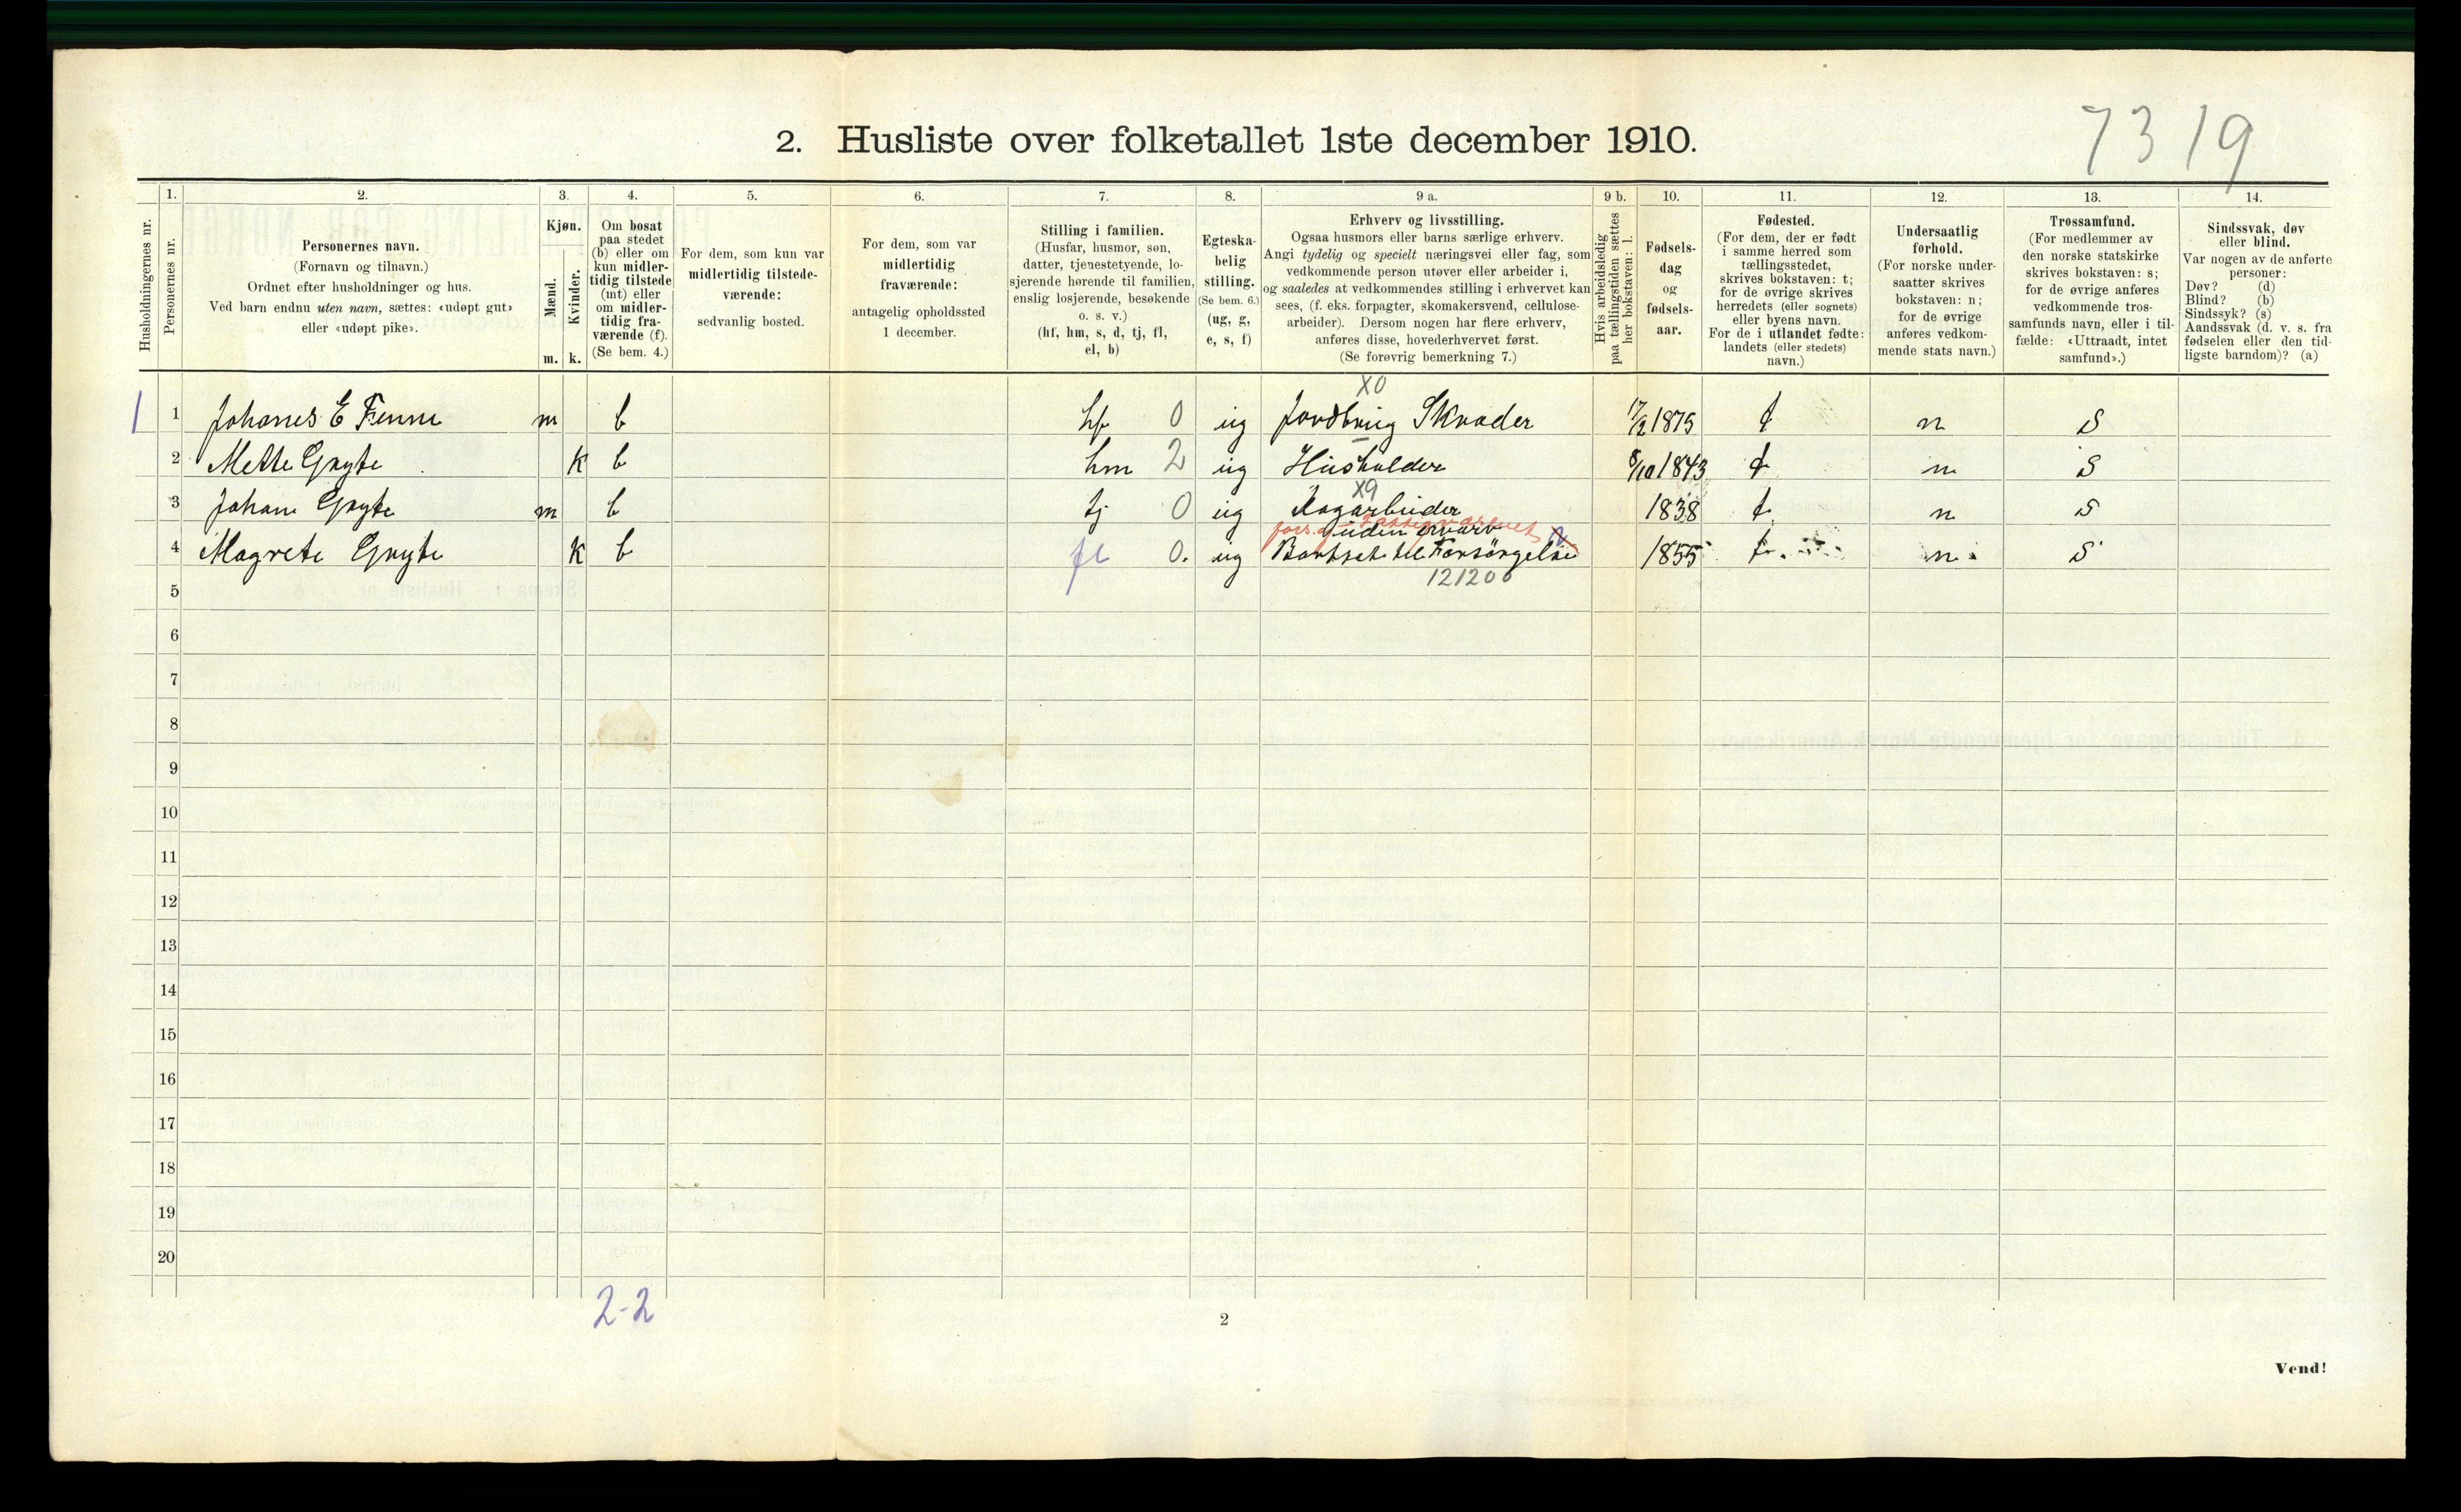 7319
2. Husliste over folketallet 1ste december 1910.
Husholdningernes nr.
1.
Personernes nr.
2.
Personernes navn.
(Fornavn og tilnavn.)
Ordnet efter husholdninger og hus.
Ved barn endnu uten navn, sættes: «udøpt gut»
eller «udøpt pike».
3.
Kjøn.
Mænd.
Kvinder.
m. k.
4.
Om bosat
paa stedet
(b) eller om
kun midler-
tidig tilstede
(mt) eller
om midler-
tidig fra-
værende (f).
(Se bem. 4.)
5.
For dem, som kun var
midlertidig tilstede-
værende:
sedvanlig bosted.
6.
For dem, som var
midlertidig
fraværende:
antagelig opholdssted
1 december.
7.
Stilling i familien.
(Husfar, husmor, søn,
datter, tjenestetyende, lo-
sjerende hørende til familien,
enslig losjerende, besøkende
o. s. v.)
(hf, hm, s, d, tj, fl,
el, b)
8.
Egteska-
belig
stilling.
(Se bem. 6.)
(ug, g,
e, s, f)
9 a.
Erhverv og livsstilling.
Ogsaa husmors eller barns særlige erhverv.
Angi tydelig og specielt næringsvei eller fag, som
vedkommende person utøver eller arbeider i,
og saaledes at vedkommendes stilling i erhvervet kan
sees, (f. eks. forpagter, skomakersvend, cellulose-
arbeider). Dersom nogen har flere erhverv,
anføres disse, hovederhvervet først.
(Se forøvrig bemerkning 7.)
9 b.
Hvis arbeidsledig
paa tællingstiden sættes
her bokstaven: l.
10.
Fødsels-
dag
og
fødsels-
aar.
11.
Fødested.
(For dem, der er født
i samme herred som
tællingsstedet,
skrives bokstaven: t;
for de øvrige skrives
herredets (eller sognets)
eller byens navn.
For de i utlandet fødte:
landets (eller stedets)
navn.)
12.
Undersaatlig
forhold.
(For norske under-
saatter skrives
bokstaven: n;
for de øvrige
anføres vedkom-
mende stats navn.)
13.
Trossamfund.
(For medlemmer av
den norske statskirke
skrives bokstaven: s;
for de øvrige anføres
vedkommende tros-
samfunds navn, eller i til-
fælde: «Uttraadt, intet
samfund».)
14.
Sindssvak, døv
eller blind.
Var nogen av de anførte
personer:
Døv? (d)
Blind? (b)
Sindssyk? (s)
Aandssvak (d. v. s. fra
fødselen eller den tid-
ligste barndom)? (a)
X0
1 1 Johanes E Fenne m b hf 0 ug Jordbrug Skræder 17/2 1875 t n S
2 Mette Gryte k b hm 2 ug Husholder 8/10 1843 t n S
X9
3 Johan Gryte m b tj 0 ug 1838 t n S
uden erværv
4 Magrete Gryte k b fl 0. ug Bortsat til Forsørgelse 1855 t. n. S
121200
5
6
7
8
9
10
11
12
13
14
15
16
17
18
19
20
2-2
2
Vend!